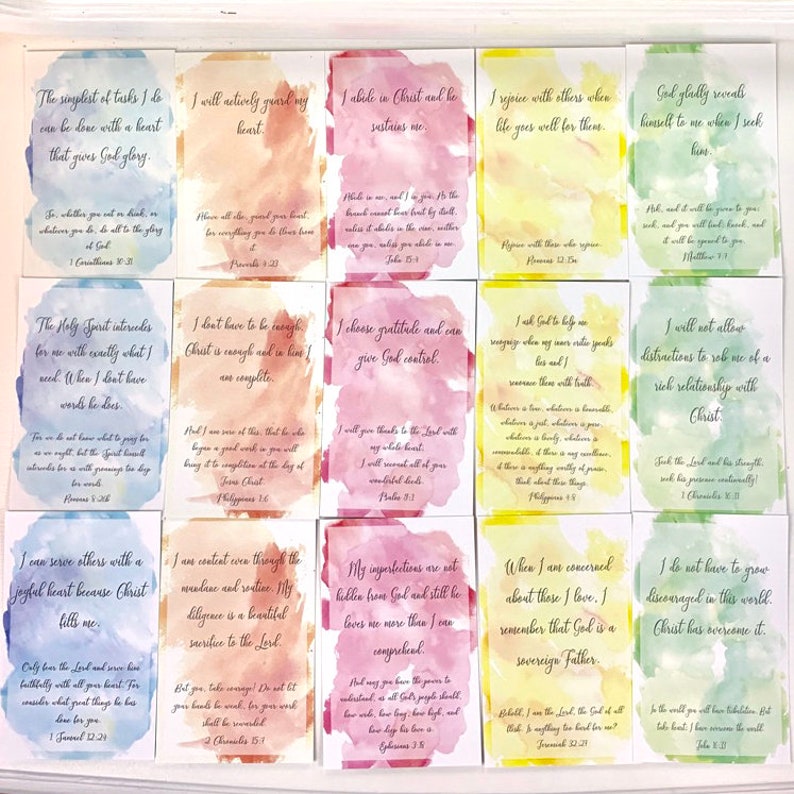 The simplest of tasks I do
can be done with a heart
that gives God glory.
So, whether you eat or drink, or
whatever you do, do all to the glory
of God.
1 Corinthians 10:31
I will actively guard my
heart.
Above all else, guard your heart,
for everything you do flows from
it.
Proverbs 4:23
I abide in Christ and he
sustains me.
Abide in me, and I in you. As the
branch cannot bear fruit by itself,
unless it abides in the vine, neither
can you, unless you abide in me.
John 15:4
I rejoice with others when
life goes well for them.
Rejoice with those who rejoice.
Romans 12:15a
God gladly reveals
himself to me when I seek
him.
Ask, and it will be given to you;
seek, and you will find; knock, and
it will be opened to you.
Matthew 7:7
The Holy Spirit intercedes
for me with exactly what I
need. When I don't have
words he does.
For we do not know what to pray for
as we ought, but the Spirit himself
intercedes for us with groanings too deep
for words.
Romans 8:26b
I don't have to be enough,
Christ is enough and in him I
am complete.
And I am sure of this, that he who
began a good work in you will
bring it to completion at the day of
Jesus Christ.
Philippians 1:6
I choose gratitude and can
give God control.
I will give thanks to the Lord with
my whole heart;
I will recount all of your
wonderful deeds.
Psalm 9:1
I ask God to help me
recognize when my inner critic speaks
lies and I
renounce them with truth.
Whatever is true, whatever is honorable,
whatever is just, whatever is pure,
whatever is lovely, whatever is
commendable, if there is any excellence,
if there is anything worthy of praise,
think about these things.
Philippians 4:8
I will not allow
distractions to rob me of a
rich relationship with
Christ.
Seek the Lord and his strength,
seek his presence continually!
1 Chronicles 16:11
I can serve others with a
joyful heart because Christ
fills me.
Only fear the Lord and serve him
faithfully with all your heart. For
consider what great things he has
done for you.
1 Samuel 12:24
I am content even through the
mundane and routine. My
diligence is a beautiful
sacrifice to the Lord.
But you, take courage! Do not let
your hands be weak, for your work
shall be rewarded.
2 Chronicles 15:7
My imperfections are not
hidden from God and still he
loves me more than I can
comprehend.
And may you have the power to
understand, as all God's people should,
how wide, how long, how high, and
how deep his love is.
Ephesians 3:18
When I am concerned
about those I love, I
remember that God is a
sovereign Father.
Behold, I am the Lord, the God of all
flesh. Is anything too hard for me?
Jeremiah 32:27
I do not have to grow
discouraged in this world.
Christ has overcome it.
In the world you will have tribulation. But
take heart; I have overcome the world.
John 16:33